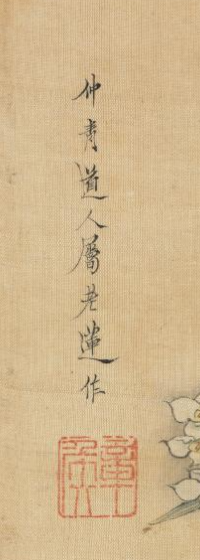 仲青道人屬老蓮作
章侯